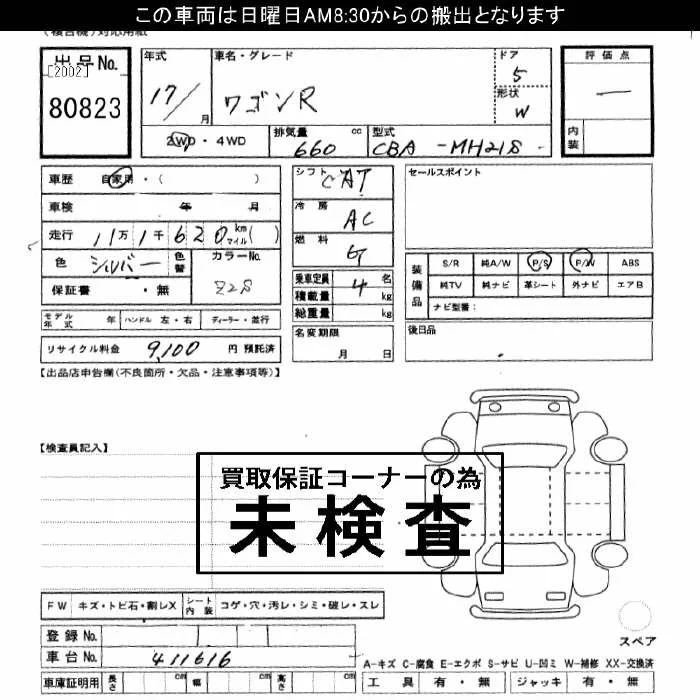 この車両は日曜日AM8:30からの搬出となります
出品No.
[2002]
80823
年式
17/
月
車名・グレード
ワゴンR
ドア
5
形状
W
評価点
内装
2WD・4WD
排気量
cc
660
型式
CBA -MH21S
車歴
自家用・( )
車検
年 月
走行
11万1千620
km
マイル
( )
色
シルバー
色替
カラーNo.
Z2S
保証書
・無
モデル年式
年
ハンドル 左・右
ディーラー・並行
リサイクル料金
9,100
円 預託済
シフト
CAT
冷房
AC
燃料
G
乗車定員
4
名
積載量
kg
総重量
kg
名変期限
月 日
セールスポイント
装備品
S/R 純A/W P/S P/W ABS
純TV 純ナビ 革シート 外ナビ エアB
ナビ型番:
後日品
【出品店申告欄(不良箇所・欠品・注意事項等)】
【検査員記入】
買取保証コーナーの為
未検査
FW キズ・トビ石・割レX シート内装 コゲ・穴・汚レ・シミ・破レ・スレ
登録No.
車台No.
411616
車庫証明用
長さ
cm
幅
cm
高さ
cm
スペア
A-キズ C-腐食 E-エクボ S-サビ U-凹ミ W-補修 XX-交換済
工具 有・無 ジャッキ 有・無